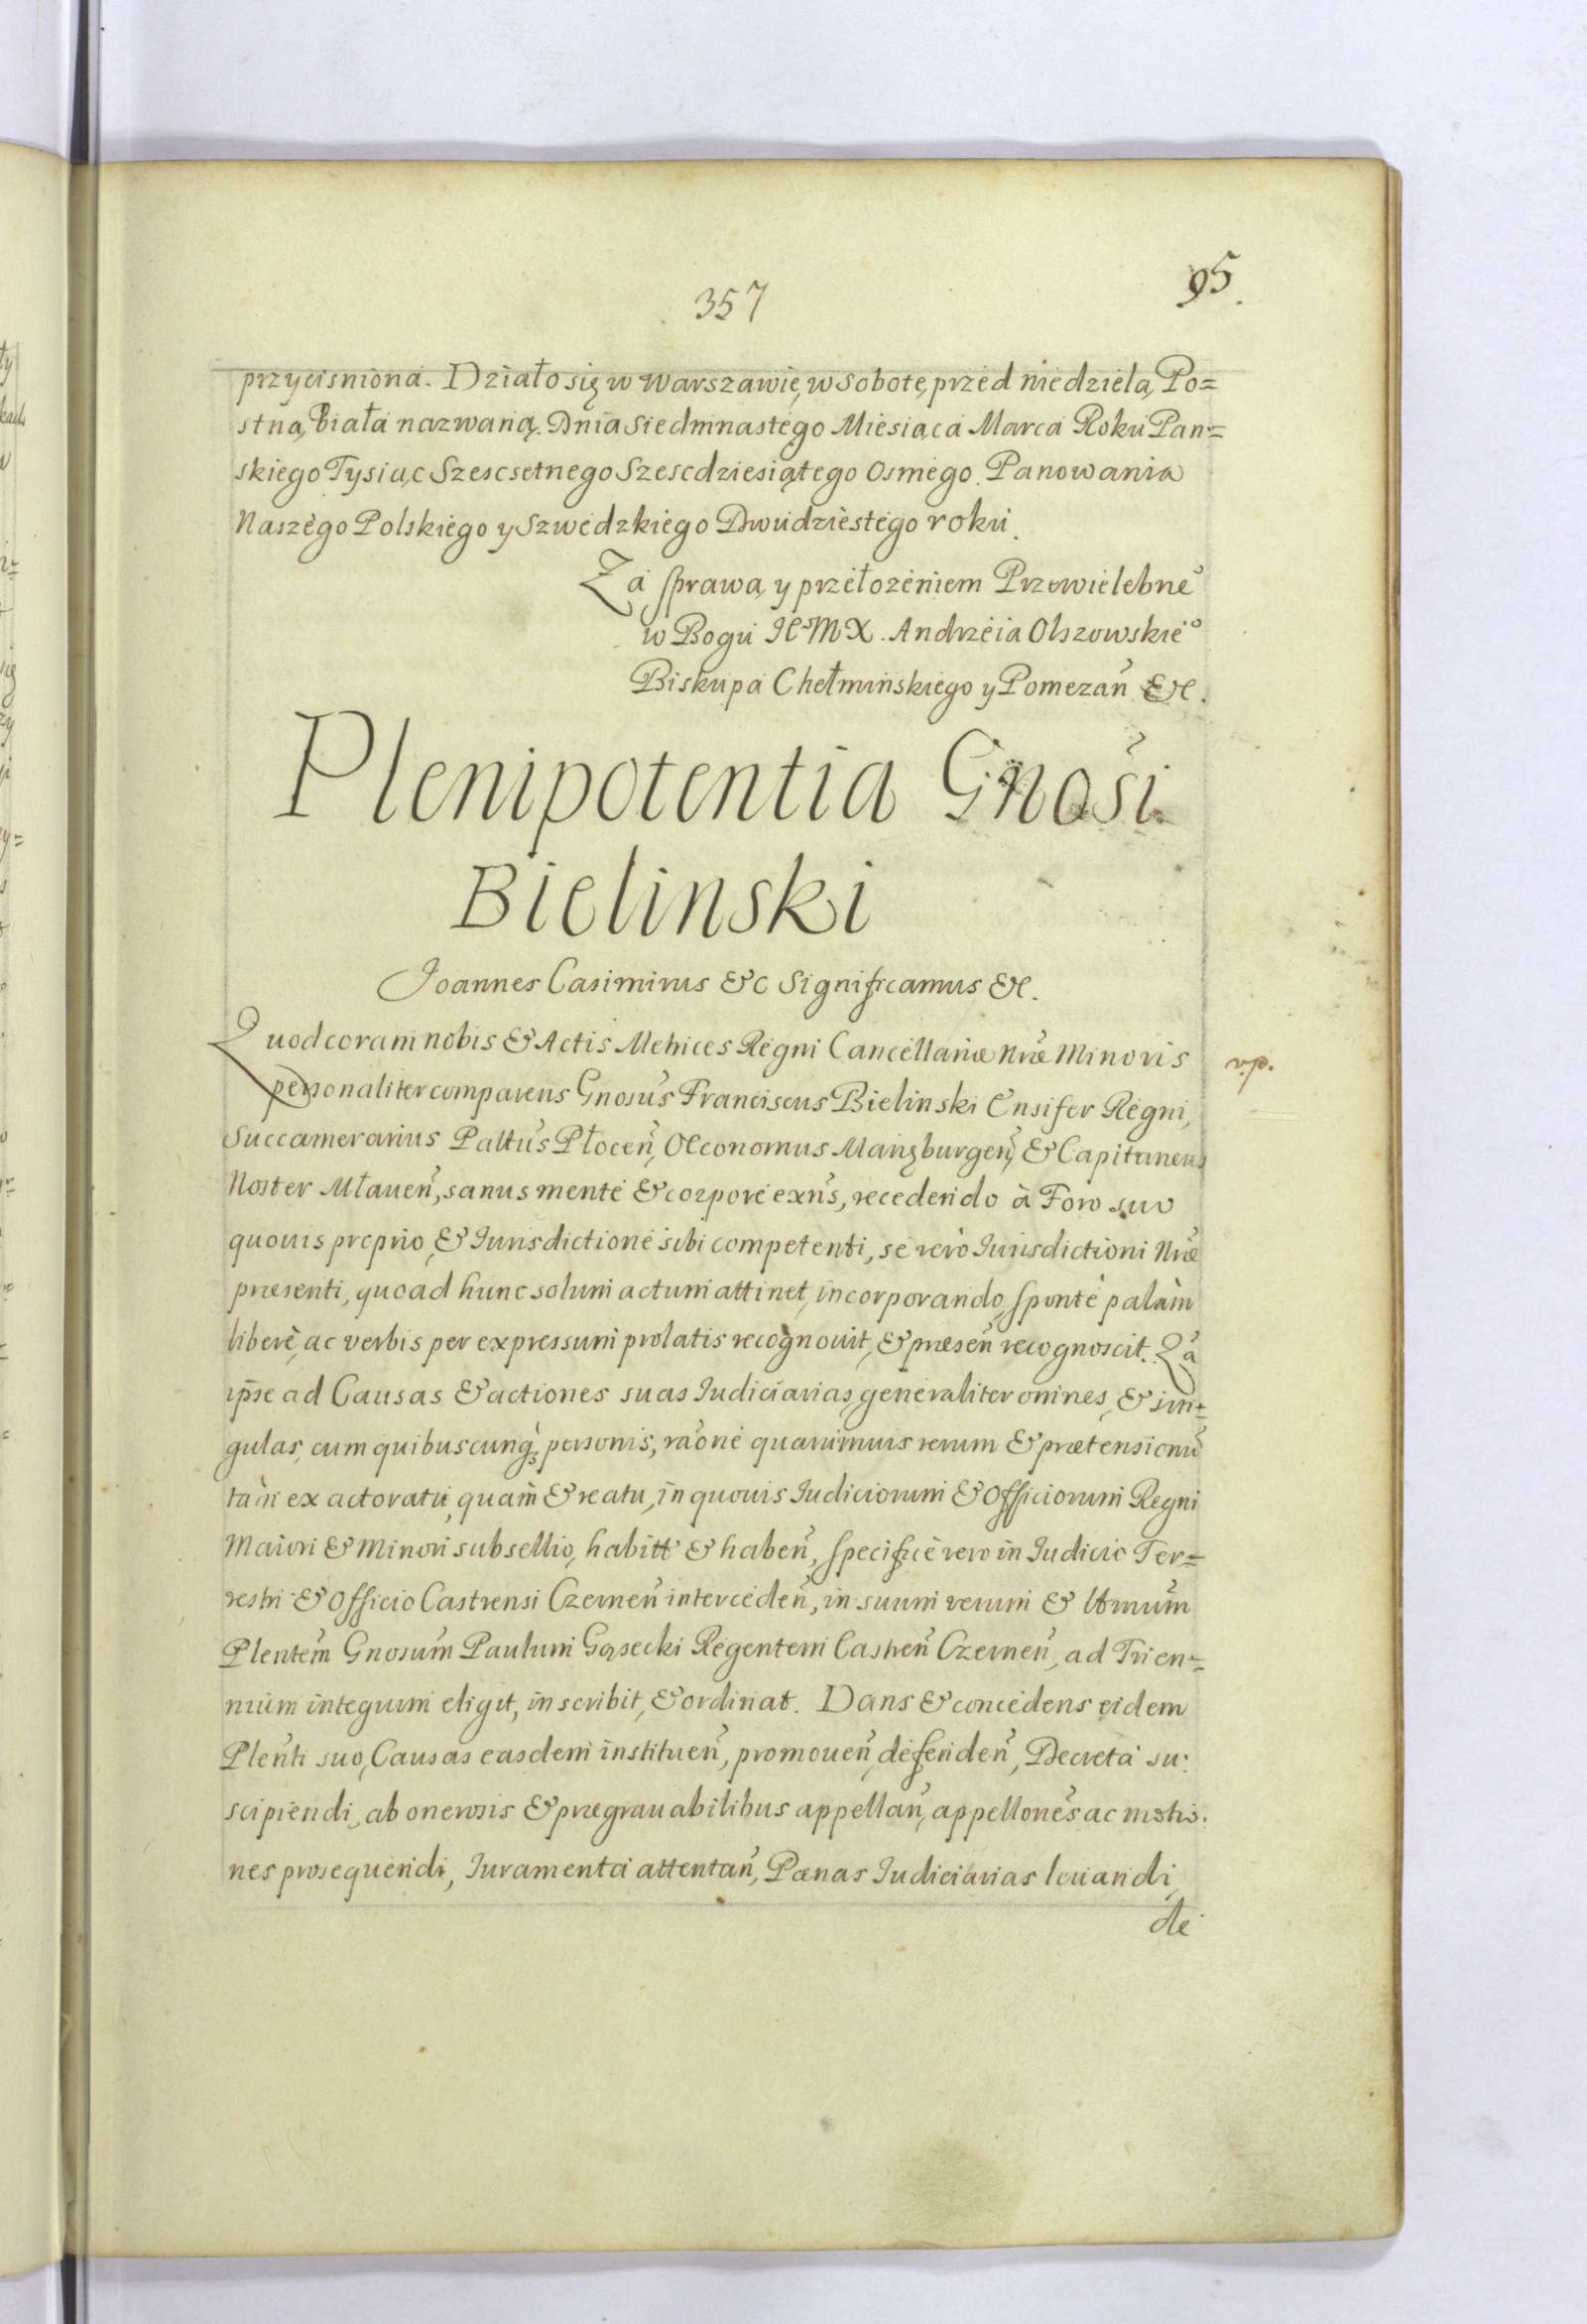 95.
357
przycisniona. Działo się w Warszawie, w Sobotę, przed niedzielą, Po=
stną, Białą nazwaną. Dnia Siedmnastego Miesiąca Marca Roku Pan=
skiego Tysiąc Szescsetnego Szescdziesiątego Osmego. Panowania
Naszego Polskiego y Szwedzkiego Dwudziestego roku.
Za sprawą y przełozeniem Przewielebneº
w Bogu JEMX. Andrzeia Olszowskieº
Biskupa Chełminskiego y Pomezan̉ &c.
Plenipotentia Gnosi
Bielinski
Joannes Casimirus &c Significamus &c.
Quod coram nobis & Actis Metrices Regni Cancellariæ Nræ Minoris
v.p.
personaliter comparens Gnosus Franciscus Bielinski Ensifer Regni,
Succamerarius Paltus Płocen̉, Œconomus Marięburgen̉, & Capitaneus
Noster Młauen̉, sanus mente & corpore exns, recedendo à Foro suo
quouis proprio, & Iurisdictione sibi competenti, se verò Iurisdictioni Nræ
præsenti, quoad hunc solum actum attinet, incorporando, sponte palàm
liberè, ac verbis per expressum prolatis recognouit, & præsen̉ recognoscit. Qa
ipse ad Causas & actiones suas Iudiciarias, generaliter omnes, & sin=
gulas, cum quibuscunq̀ personis, raone quarumuis rerum & prætensionu
tàm ex actoratu, quam & reatu, in quouis Iudiciorum & Officiorum Regni
Maiori & Minori subsellio, habitt & haben̉, specificè vero in Iudicio Ter=
restri & Officio Castrensi Czernen̉ interceden̉, in suum verum & Ltmum
Plentem Gnosum Paulum Gąsecki Regentem Castren̉ Czernen̉, ad Trien=
nium integrum eligit, inscribit, & ordinat. Dans & concedens eidem
Plenti suo, Causas easdem instituen̉, promouen̉, defenden̉, Decreta su:
scipiendi, ab onerosis & prægrauabilibus appellan̉, appellones ac motio.
nes prosequendi, Iuramenta attentan̉, Pænas Iudiciarias leuandi,
de